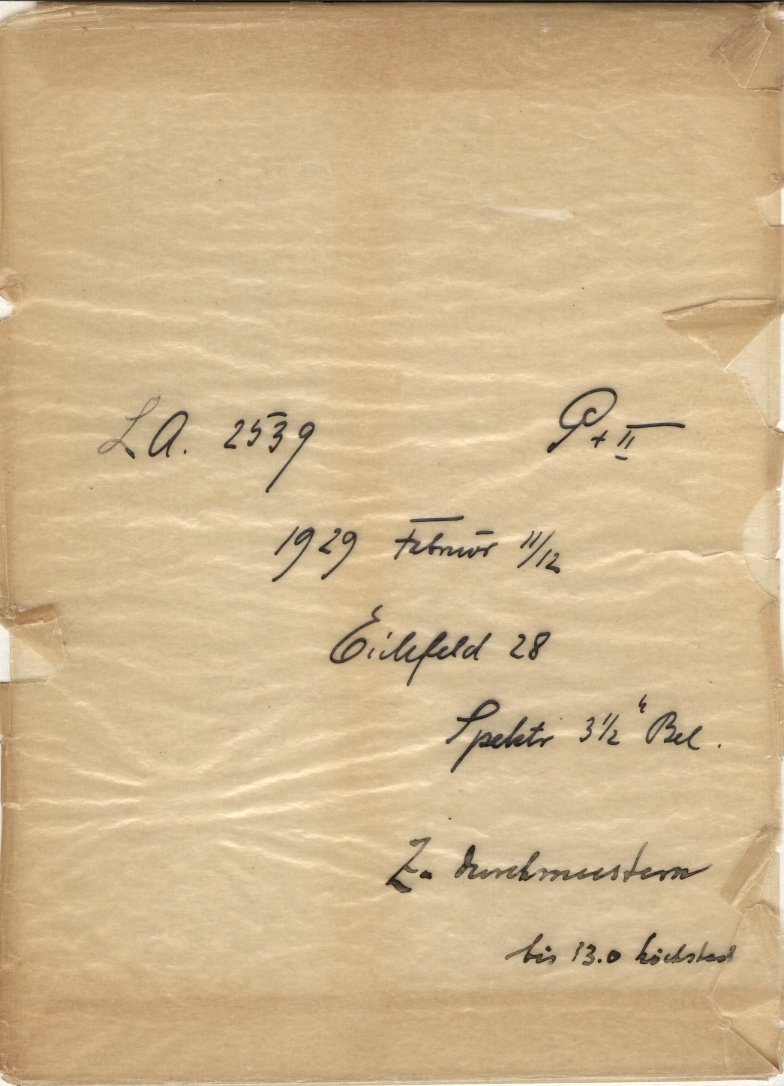 L A. 2539 P + II
1929 Februar 11/12
Eichfeld 28
Spektr 3 1/2 h Bel.
Z. durchmustern
bis 13.0 höchstens